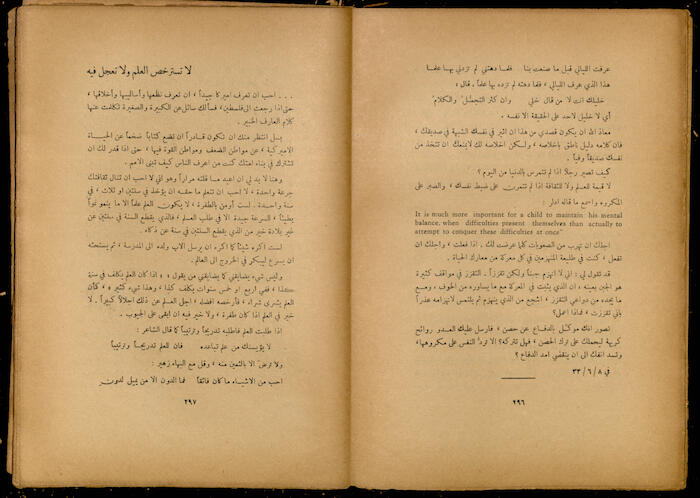 عرفت الليالي قبل ما صنعت بنا فلما دهتني لم تزدني بها علما
هذا الذي عرف الليالي ، فلما دهته لم تزده بها علماً. قال :
خليلك انت لا من قال خلي وان كثر التجمل والكلام
أي لا خليل لاحد على الحقيقة الا نفسه .
معاذ الله ان يكون قصدي من هذا ان اثير في نفسك الشبهة في صديقك ،
فان كلامه دليل ناطق باخلاصه ، ولكن اخلاصه لك لا يمنعك ان تتخذ من
نفسك صديقاً وفياً .
كيف تصير رجلاً اذا لم تتمرس بالدنيا من اليوم ؟
لا قيمة للعلم ولا للثقافة اذا لم تتمرن على ضبط نفسك ، والصبر على
المكروه واسمع ما قاله ادلر :
It is much more important for a child to maintain his mental
balance, when difficulties present themselves than actually to
attempt to conquer these difficulties at once"
اجلك ان تهرب من الصعوبات كلما عرضت لك . اذا فعلت ، واجلك ان
تفعل ، كنت في طليعة المنهزمين في كل معركة من معارك الحياة .
قد تقول لي : اني لا انهزم جبناً ولكن تقززاً . التقزز في مواقف كثيرة
هو الجبن بعينه ، ان الذي يثبت في المعركة مع ما يساوره من الخوف ، ومع
ما يجده من دواعي التقزز ، اشجع من الذي ينهزم ثم يلتمس لانهزامه عذراً
باني تقززت ، فماذا اعمل ؟
تصور انك موكل بالدفاع عن حصن ، فارسل عليك العدو روائح
كريهة ليحملك على ترك الحصن ، فهل تتركه ؟ الا تردُّ النفس على مكروهها ،
وتسد انفك الى ان ينقضي امد الدفاع ؟
في ٨ / ٦ / ٣٣
٢٩٦
لا تسترخص العلم ولا تعجل فيه
. . . احب ان تعرف اميركا جيداً ، ان تعرف نظمها وأساليبها وأخلاقها ،
حتى اذا رجعت الى فلسطين، فسألك سائل عن الكبيرة والصغيرة تكلمت عنها
كلام العارف الخبير .
بل انتظر منك ان تكون قادراً ان تضع كتاباً ضخماً عن الحيــاة
الاميركية ، عن مواطن الضعف ومواطن القوة فيها ، حتى اذا قدر لك ان
تشترك في بناء امتك كنت من اعرف الناس كيف تبنى الامم .
وهنا لا بد لي ان اعيد ما قلته مراراً وهو اني لا احب ان تنال ثقافتك
جرعة واحدة ، لا احب ان تتعلم ما حقه ان يؤخذ في سنتين او ثلاث ، في
سنة واحدة . لست أومن بالطفرة ، لا يكون العلم علماً الا ما ينمو نمواً
بطيئاً ، السرعة جيدة الا في طلب العلم ، فالذي يقطع السنة في سنتين عن
غير بلادة خير من الذي يقطع السنتين في سنة عن ذكاء .
لست اكره شيئاً كما اكره ان يرسل الاب ولده الى المدرسة ، ثم يستحثه
ان يسرع ليبكر في الخروج الى العالم .
وليس شيء يضايقني كما يضايقني من يقول ، « اذا كان العلم يكلف في سنة
كذا ، ففي اربع او خمس سنوات يكلف كذا ، وهذا شيء كثير » ، كأن
العلم يشرى شراء ، فأرخصه افضله ، اجل العلم عن ذلك اجلالاً كبيراً . لا
خير في العلم اذا كان طفرة ، ولا خير فيه ان ابقى على الجيوب .
اذا طلبت العلم فاطلبه تدريجاً وترتيباً كما قال الشاعر :
لا يؤيسنك من علم تباعده فان للعلم تدريجــاً وترتيبــا
ولا ترض الا بالثمين منه ، وقل مع البهاء زهير :
احب من الاشيــاء ما كان فائقاً فما الدون الا من يميل لدون
٢٩٧